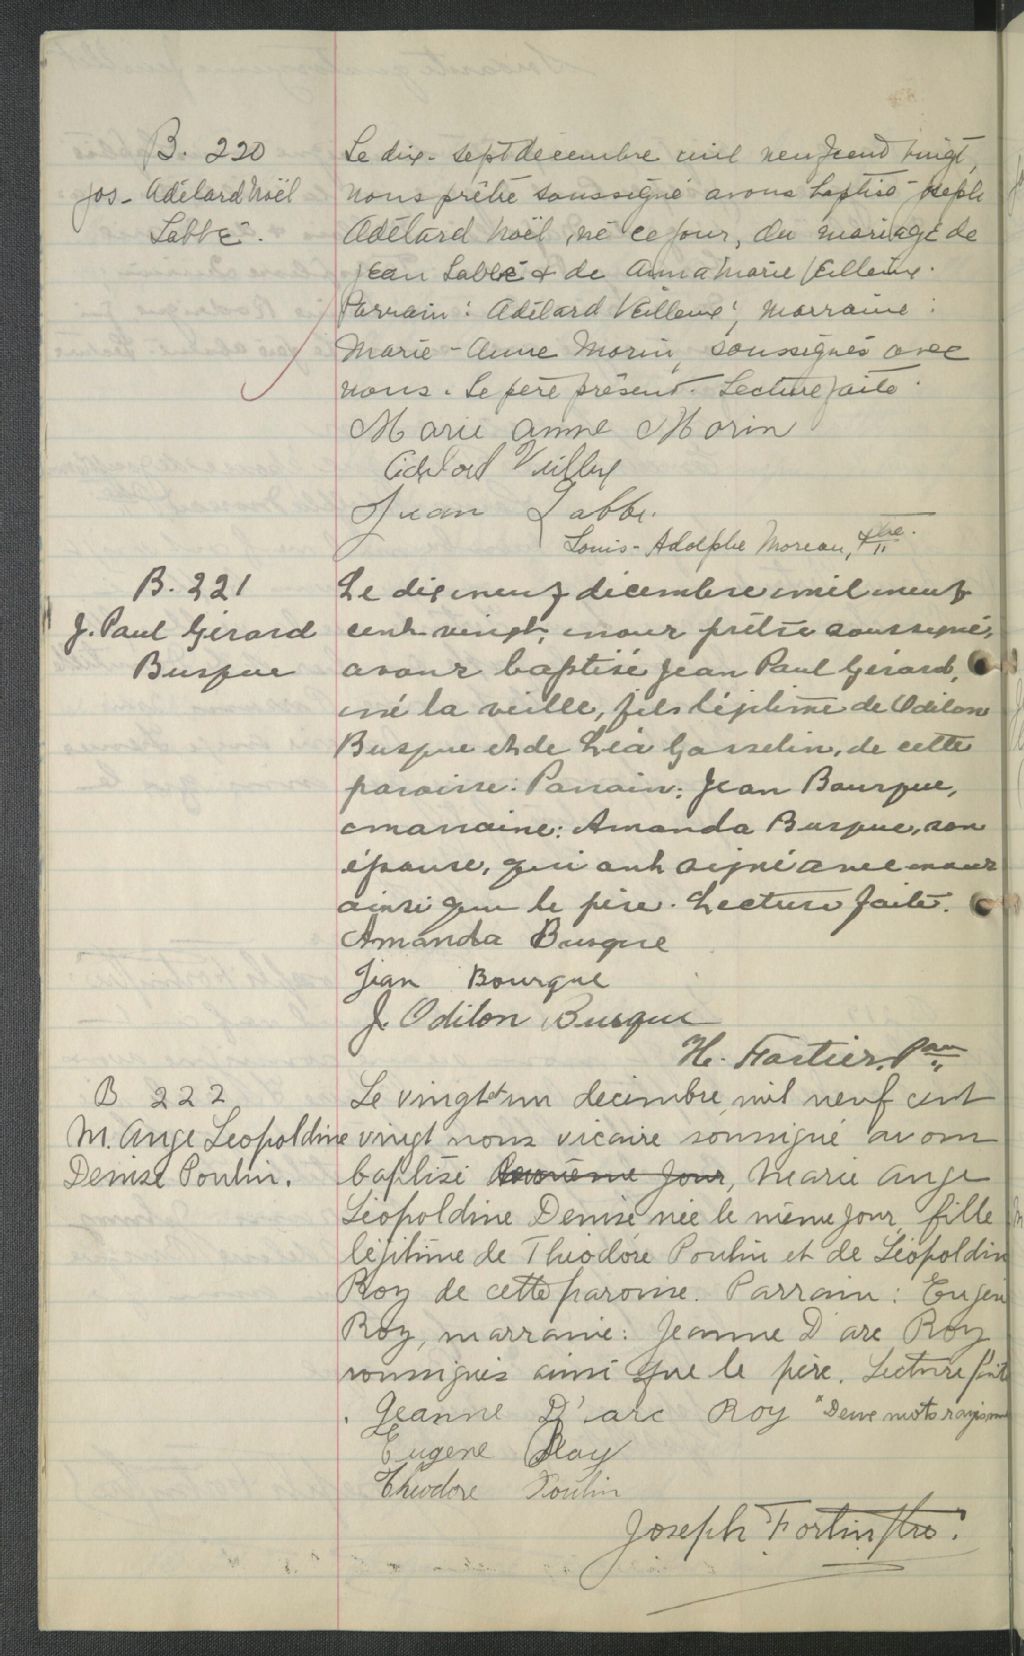 B. 220
Jos- Adélard Noël
Labbé.
Le dix-sept décembre mil neuf cent vingt,
nous prêtre soussigné avons baptisé Joseph
Adélard Noël, né ce jour, du mariage de
Jean Labbé & de Anna Marie Veilleux.
Parrain: Adélard Veilleux; marraine:
Marie-Anne Morin, soussignés avec
nous. Le père présent. Lecture faite.
Marie anne Morin
Adelard Veilleux
Jean Labbé.
Louis-Adolphe Moreau, ptre.
B. 221
J. Paul Gérard
Busque
Le dix neuf décembre mil neuf
cent vingt, nous prêtre soussigné,
avons baptisé Jean Paul Gérard,
né la veille, fils légitime de Odilon
Busque et de Léa Gosselin, de cette
paroisse. Parrain: Jean Bourque,
marraine: Amanda Busque, son
épouse, qui ont signé avec nous
ainsi que le père. Lecture faite.
Amanda Busque
Jean Bourque
J. Odilon Busque
H. Fortier, P
B 222
M. Ange Leopoldine
Denise Poulin.
Le vingt et un décembre mil neuf cent
vingt nous vicaire soussigné avons
baptisé jour, Marie Ange
Léopoldine Denise née le même jour, fille
légitime de Théodore Poulin et de Léopoldin
Roy de cette paroisse. Parrain: Eugèn
Roy, marraine: Jeanne D'arc Roy
soussignés ainsi que le père. Lecture faite
. Jeanne D'arc Roy "Deux mots rayés
Eugene Roy
Théodore Poulin
Joseph Fortin ptre.